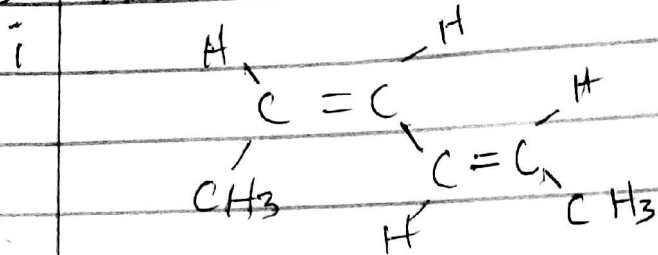 i
H H
C = C H
CH3 C = C
H CH3